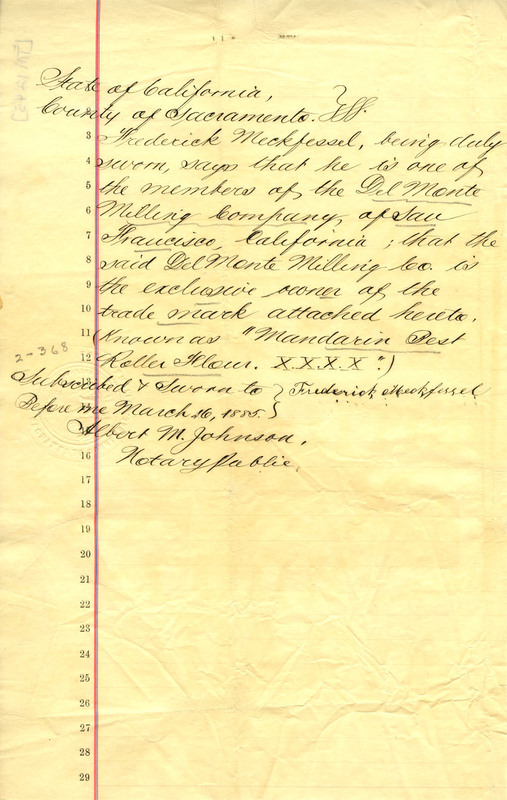 State of California,
County of Sacramento. } SS.
3 Frederick Meckfessel, being duly
4 sworn, says that he is one of
5 the members of the Del Monte
6 Milling Company, of San
7 Francisco, California; that the
8 said Del Monte Milling Co. is
9 the exclusive owner of the
10 trade mark attached hereto.
11 (Known as "Mandarin Best
12 Roller Flour. X.X.X.X".)
2-368
Subscribed & Sworn to } Frederick Meckfessel
Before me March 16, 1885. }
Albert M. Johnson,
16 Notary Public
17
18
19
20
21
22
23
24
25
26
27
28
29